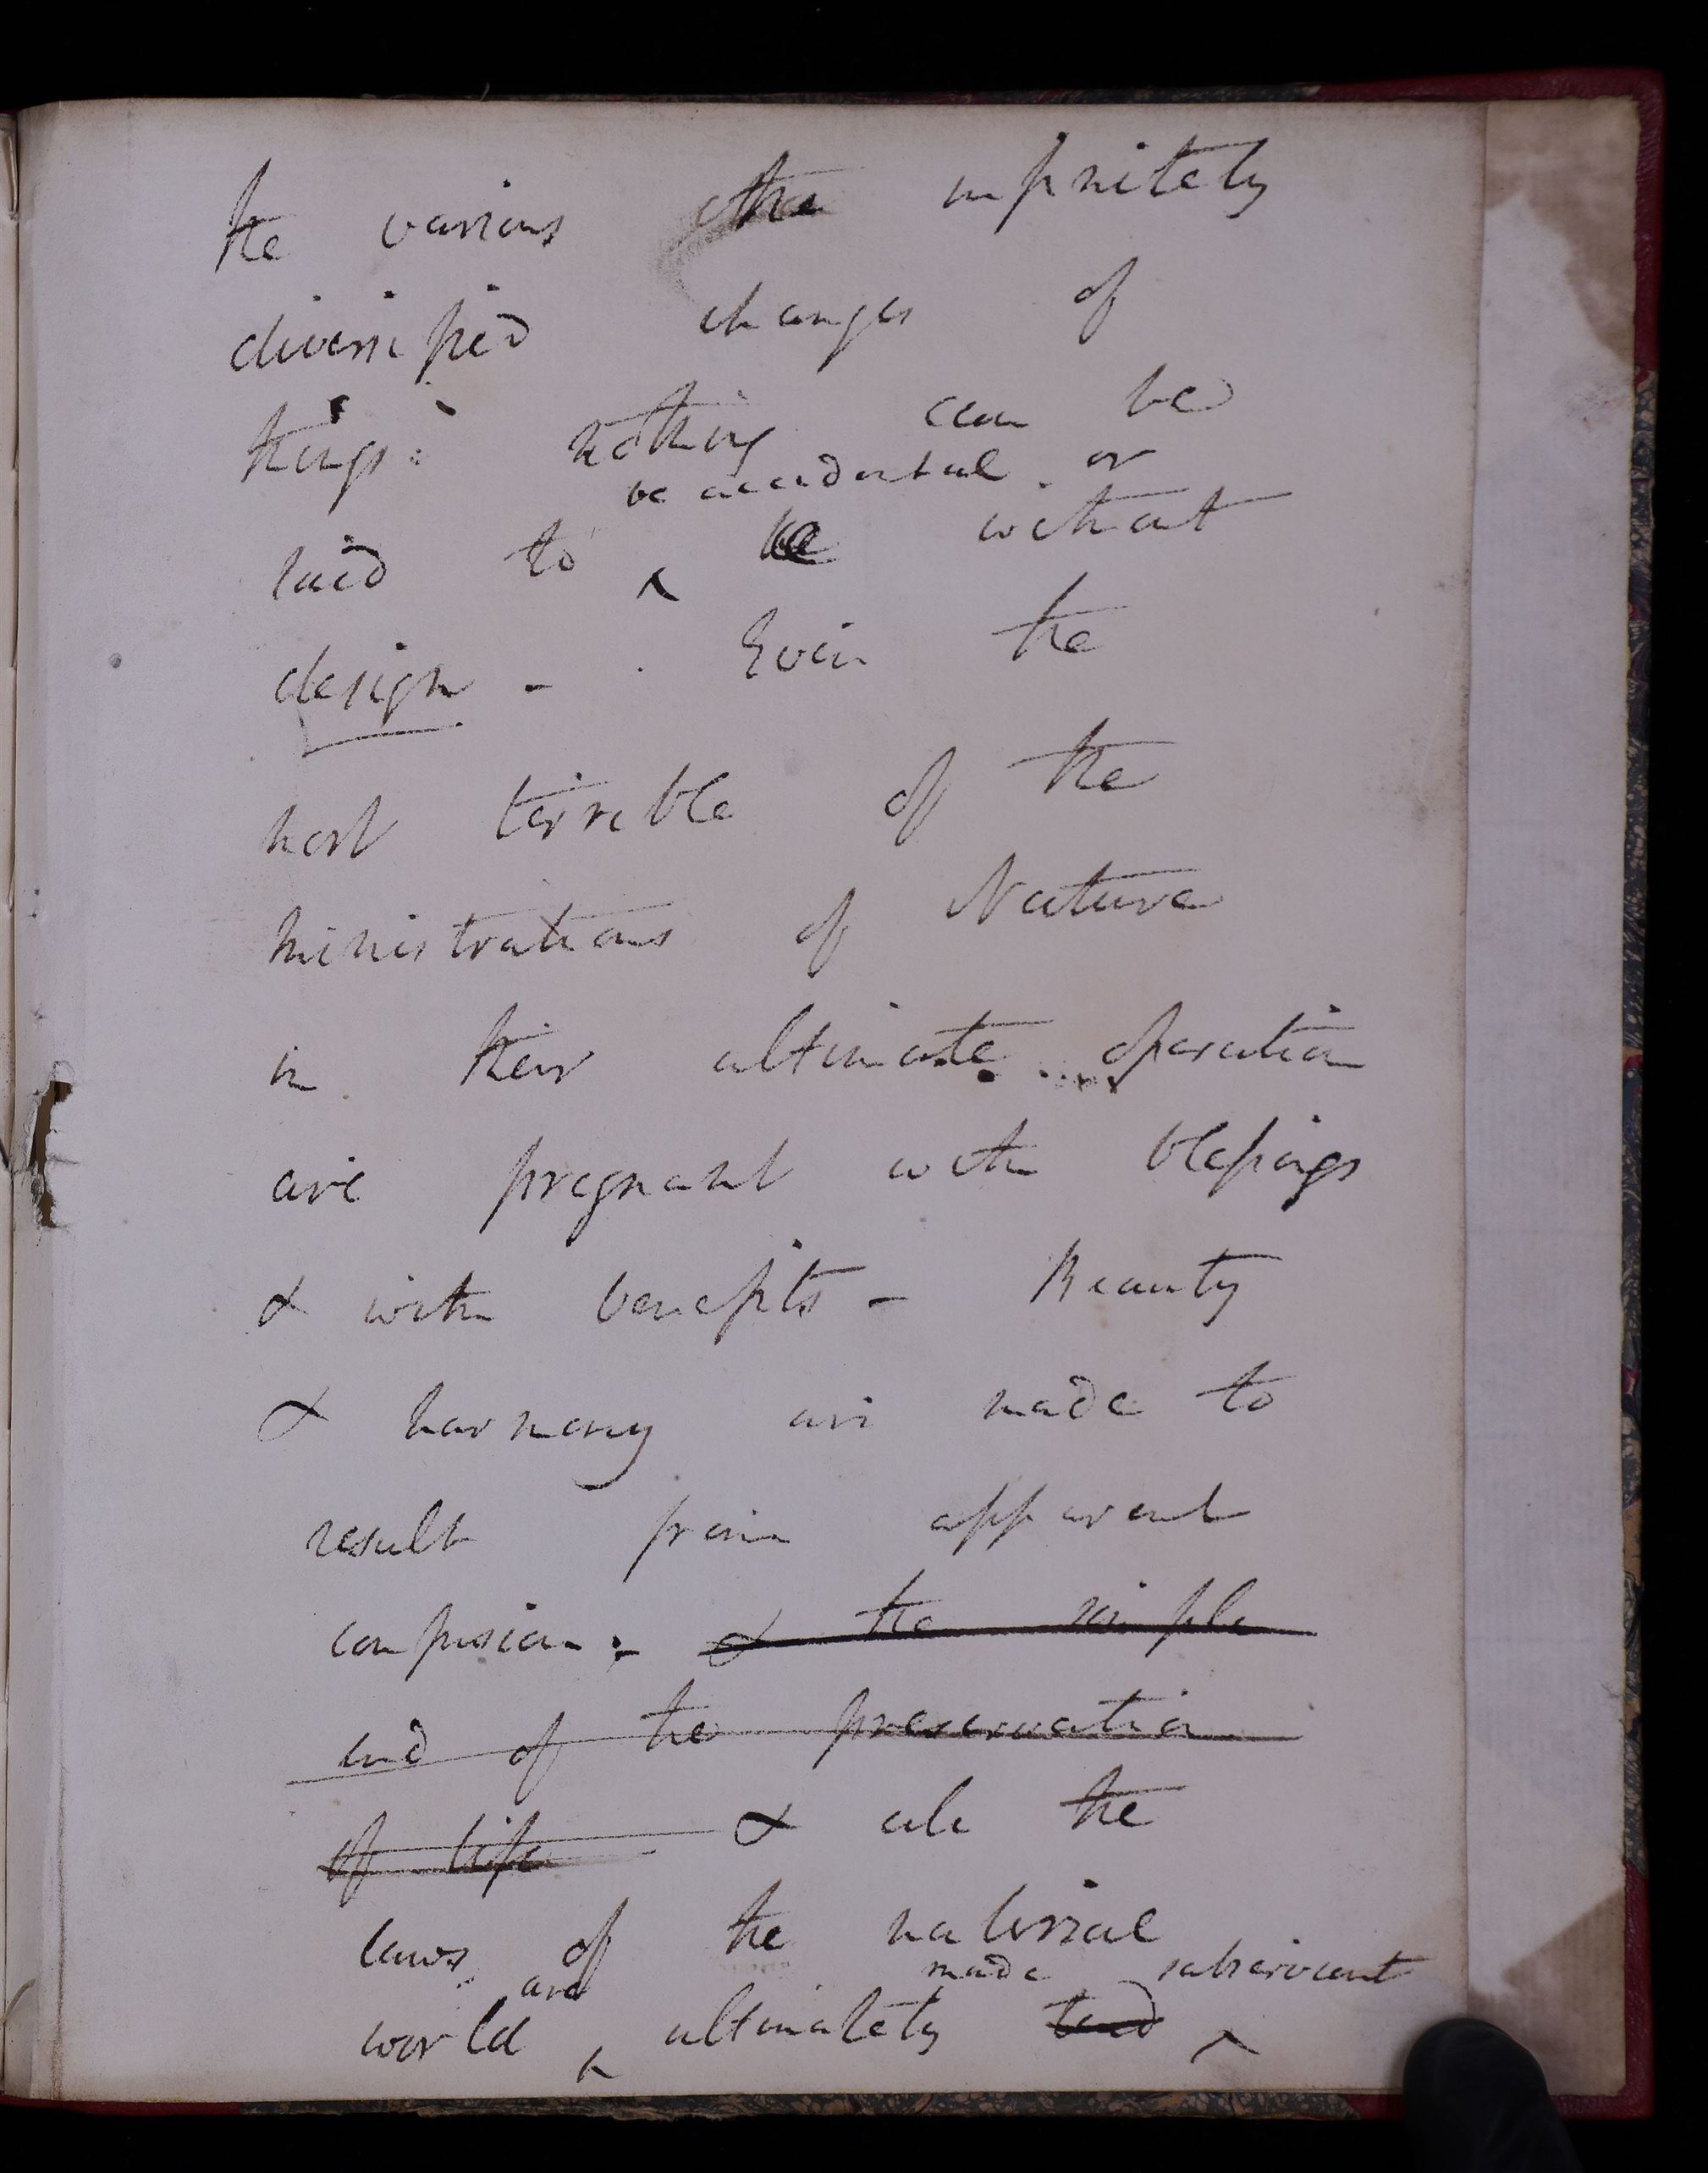 the various the infinitely
diversified changes of
things: nothing can be
be accidental or
said to ^ be without
design - . Even the
most terrible of the
ministrations of Nature
in their ultimate operation
are pregnant with blessings
& with benefits - Beauty
& harmony are made to
result from apparent
confusion. - & the simple
end of the preservation
of life & all the
laws of the material
are made subservient
world ^ ultimately tend ^